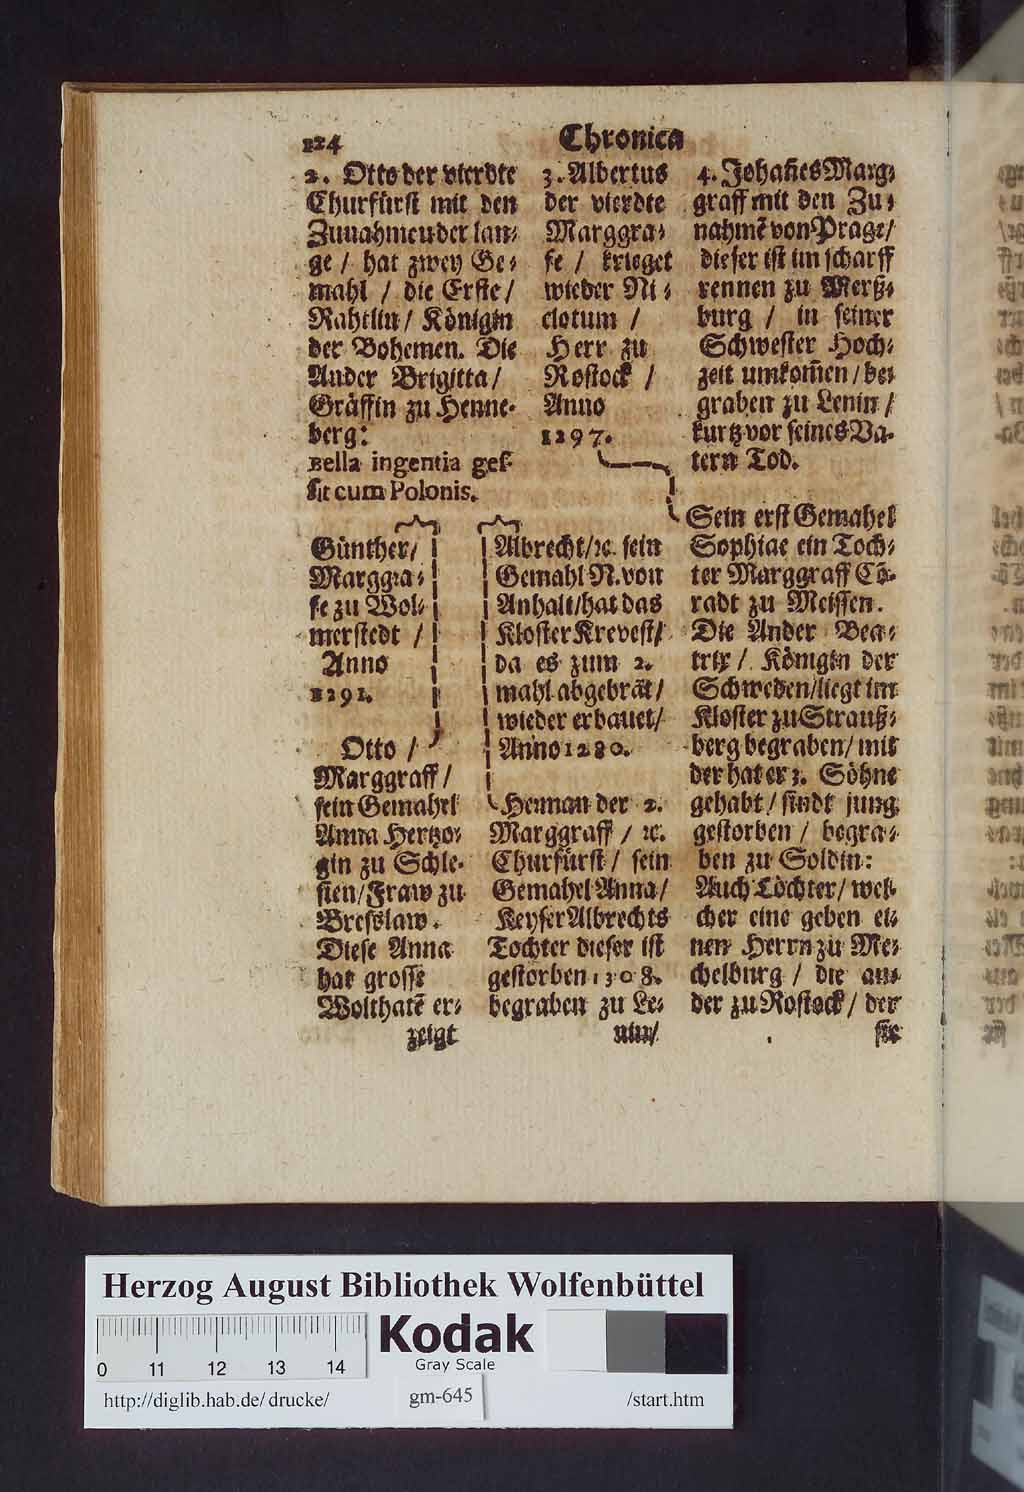 124
Chronica
2. Otto der vierdte
Churfürst mit den
Zunahmen der lan⸗
ge / hat zwey Ge⸗
mahl / die Erste /
Rahtlin / Königin
der Bohemen. Die
Ander Brigitta /
Gräffin zu Henne⸗
berg:
Bella ingentia ges⸗
sit cum Polonis.
3. Albertus
der vierdte
Marggra⸗
fe / krieget
wieder Ni⸗
clotum /
Herr zu
Rostock /
Anno
1297.
4. Johañes Marg⸗
graff mit den Zu⸗
nahmẽ von Prage /
dieser ist im scharff
rennen zu Mertz⸗
burg / in seiner
Schwester Hoch⸗
zeit umkom̃en / be⸗
graben zu Lenin /
kurtz vor seines Va⸗
tern Tod.
Günther /
Marggra⸗
fe zu Wol⸗
merstedt /
Anno
1291.
Otto /
Marggraff /
sein Gemahel
Anna Hertzo⸗
gin zu Schle⸗
sien / Fraw zu
Breßlaw.
Diese Anna
hat grosse
Wolthatẽ er⸗
zeigt
Albrecht / ꝛc. sein
Gemahl N. von
Anhalt / hat das
Kloster Krevest /
da es zum 2.
mahl abgebrãt /
wieder erbauet /
Anno 1280.
Herman der 2.
Marggraff / ꝛc.
Churfürst / sein
Gemahel Anna /
Keyser Albrechts
Tochter dieser ist
gestorben 1308.
begraben zu Le⸗
nin /
Sein erst Gemahel
Sophiae ein Toch⸗
ter Marggraff Cõ⸗
radt zu Meissen.
Die Ander Bea⸗
trix / Königin der
Schweden / liegt im
Kloster zu Strauß⸗
berg begraben / mit
der hat er 3. Söhne
gehabt / sindt jung
gestorben / begra⸗
ben zu Soldin:
Auch Töchter / wel⸗
cher eine geben ei⸗
nen Herrn zu Me⸗
chelburg / die an⸗
der zu Rostock / der
Herzog August Bibliothek Wolfenbüttel
Kodak
Gray Scale
0 11 12 13 14
http://diglib.hab.de/drucke/
gm-645
/start.htm